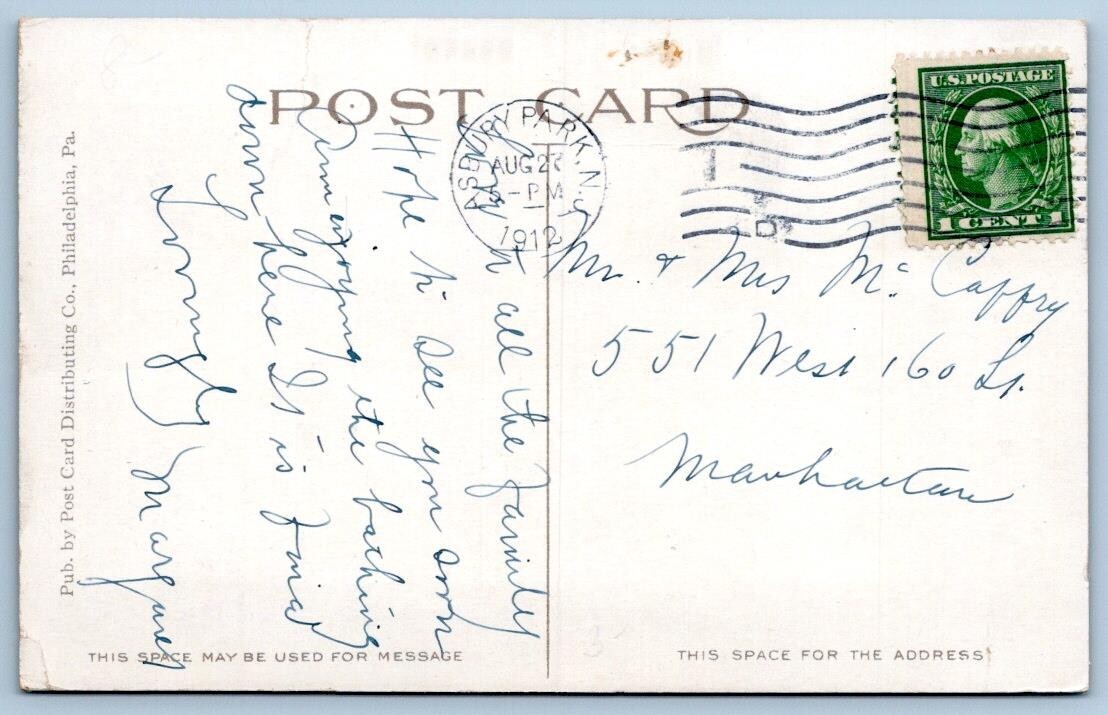 POST CARD
U.S. POSTAGE
1 CENT 1
ASBURY PARK, N.J.
AUG 27
- PM
1912
to all the family
Hope to see you soon
Am enjoying the bathing
down here It is fine
Lovingly
Mr. & Mrs Mc Caffry
551 West 160 St.
Manhattan
Pub. by Post Card Distributing Co., Philadelphia, Pa.
THIS SPACE MAY BE USED FOR MESSAGE
THIS SPACE FOR THE ADDRESS